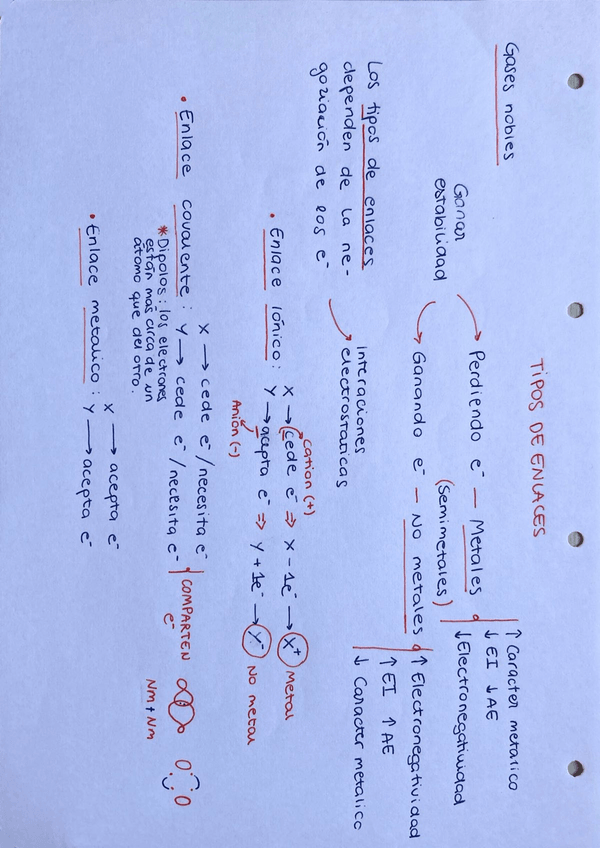 TIPOS DE ENLACES
Gases nobles
Ganar
estabilidad
Perdiendo e⁻ — Metales
↑ Caracter metalico
↓ EI ↓ AE
↓ Electronegatividad
(Semimetales)
Ganando e⁻ — No metales
↑ Electronegatividad
↑ EI ↑ AE
↓ Caracter metalico
Los tipos de enlaces
dependen de la ne-
goziación de los e⁻
Interaciones
electrostaticas
• Enlace Iónico :
cation (+)
X → cede e⁻ ⇒ X - 1e⁻ → X⁺ Metal
Y → acepta e⁻ ⇒ Y + 1e⁻ → Y⁻ No metal
Anión (-)
• Enlace covalente :
X → cede e⁻/necesita e⁻
Y → cede e⁻/necesita e⁻
COMPARTEN
e⁻
Nm + Nm
* Dipolos : los electrones
están más cerca de un
átomo que del otro.
• Enlace metalico :
X → acepta e⁻
Y → acepta e⁻